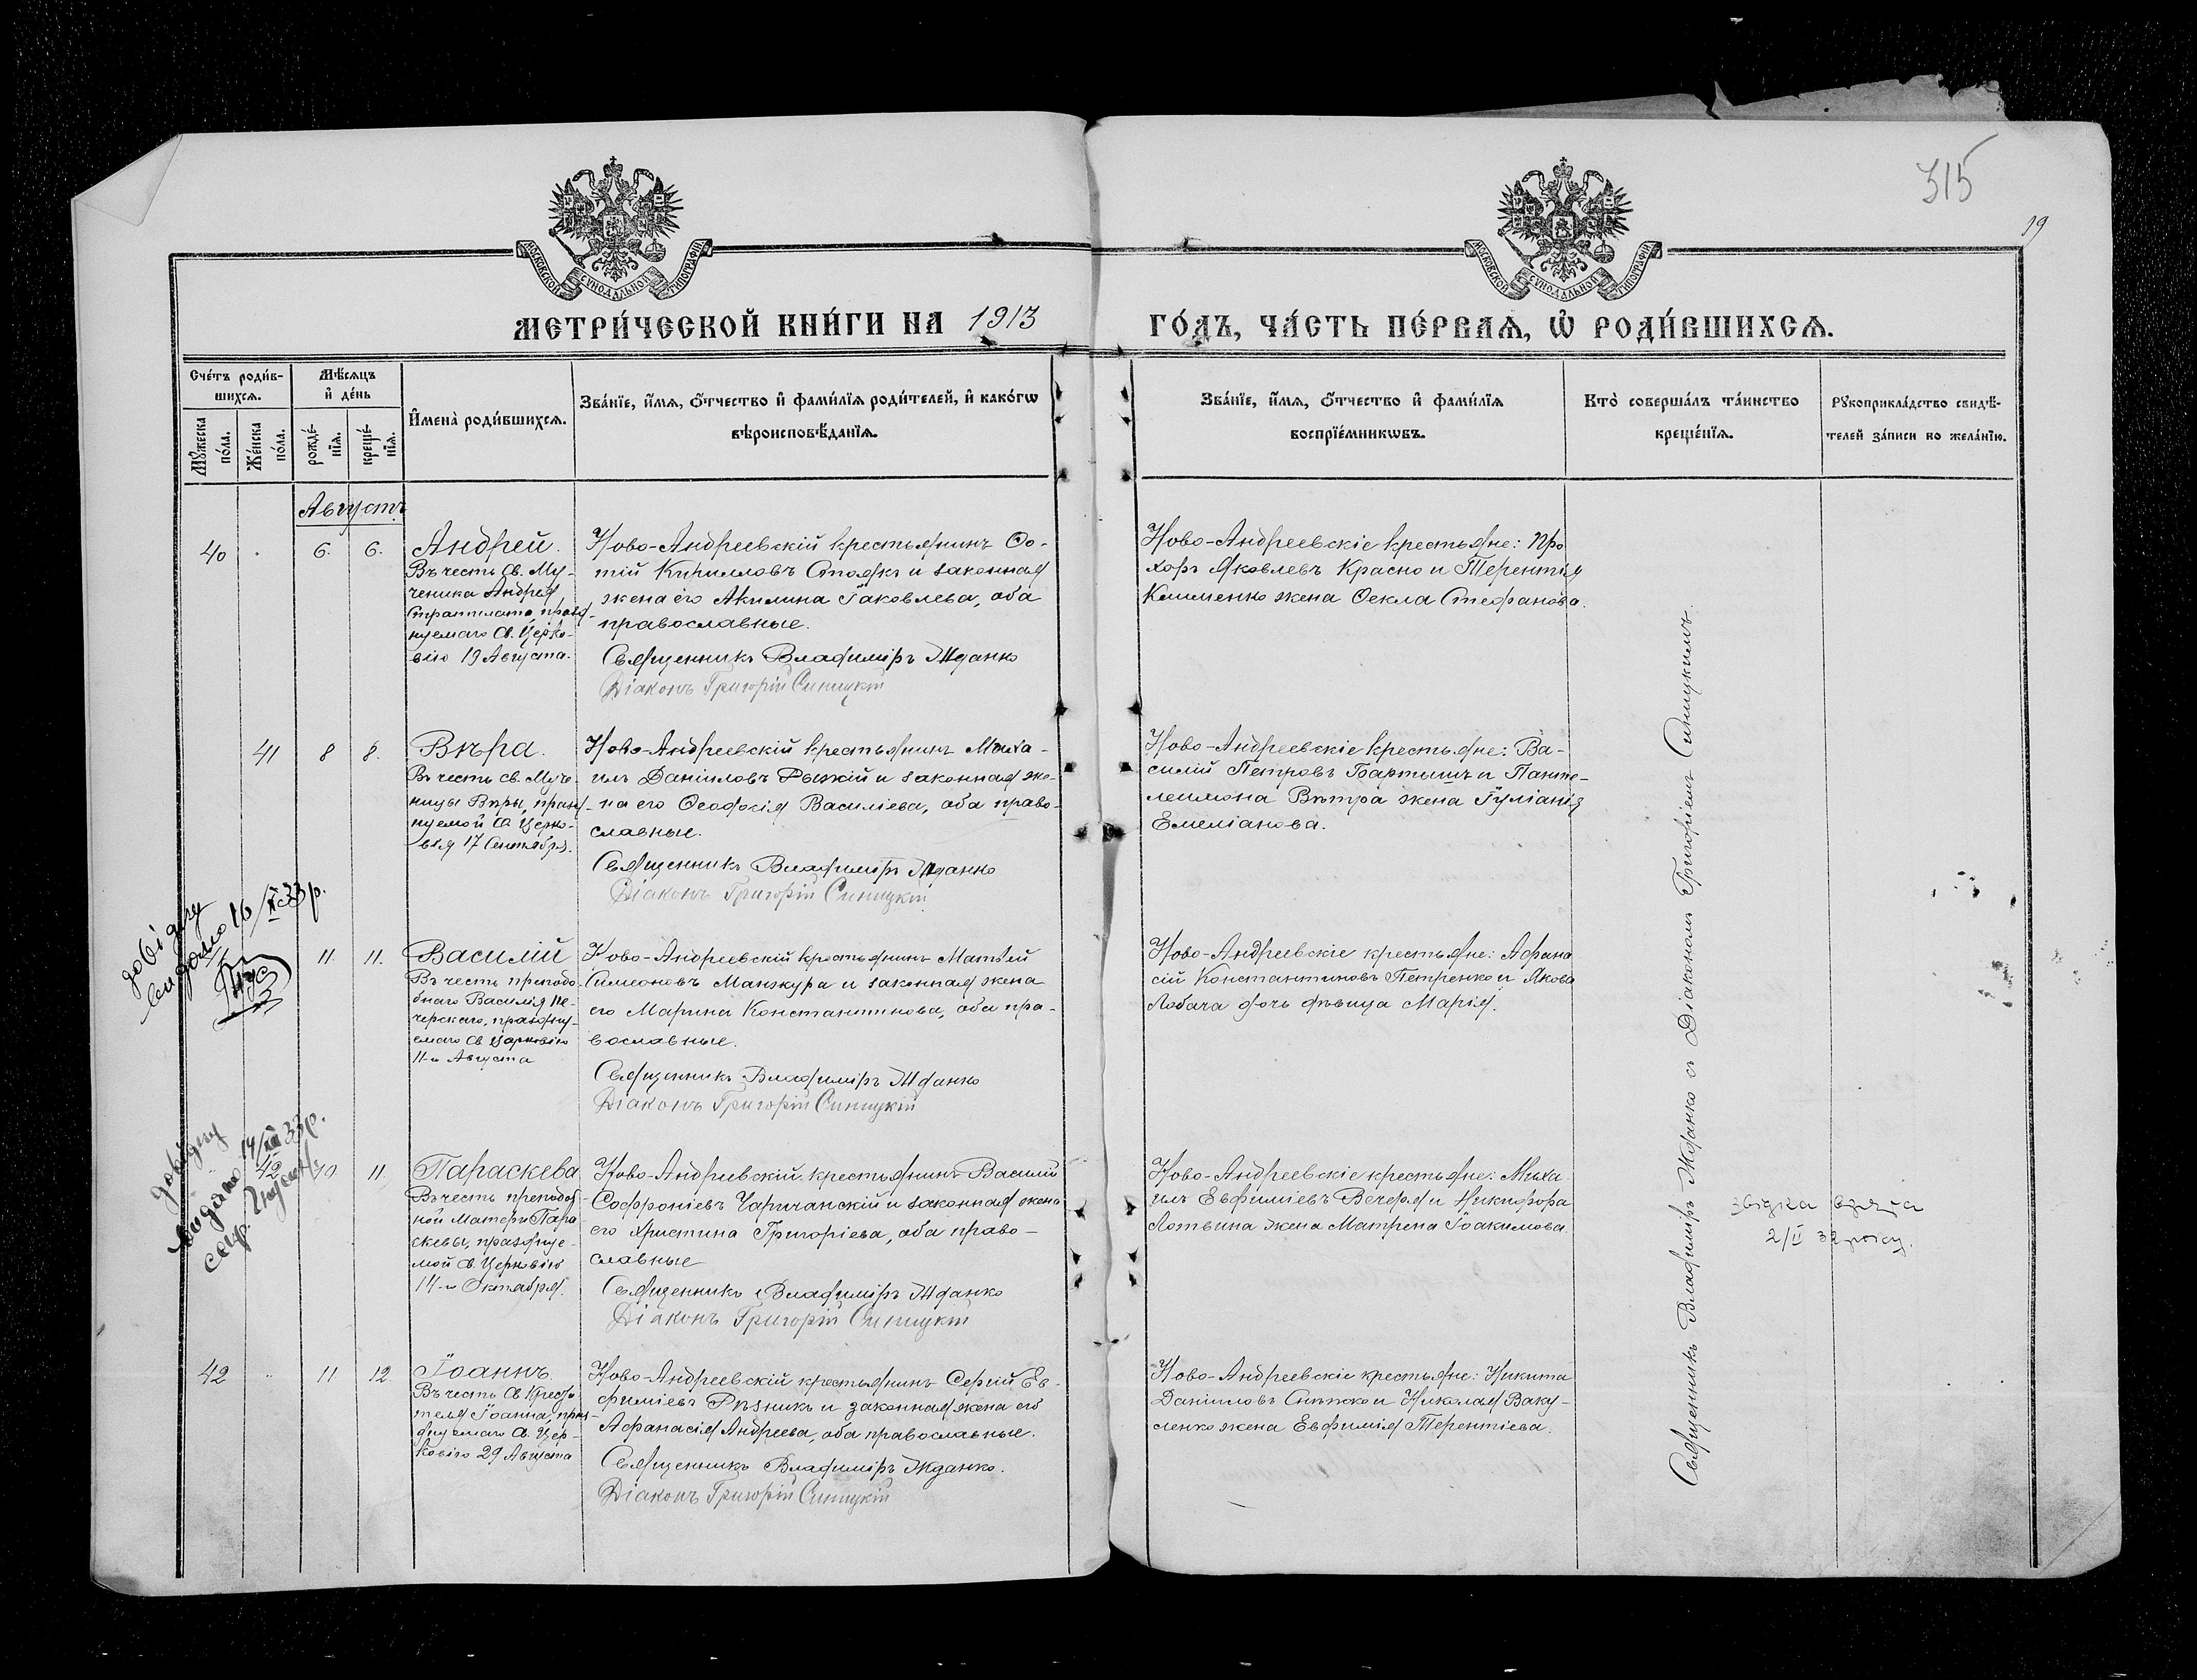 315
19
МОСКОВСКОЙ СѴНОДАЛЬНОЙ ТИПОГРАФІИ
МОСКОВСКОЙ СѴНОДАЛЬНОЙ ТИПОГРАФІИ
МЕТРИ́ЧЕСКОЙ КНИ́ГИ НА 1913 ГО́ДЪ, ЧА́СТЬ ПЕ́РВАЯ, Ѡ РОДИ́ВШИХСЯ.
Сче́тъ роди́в-
шихся.
Мꙋжеска
по́ла.
Же́нска
по́ла.
Мѣ́сяцъ
и҆ де́нь
рожде́-
нїя.
креще́-
нїя.
И҆мена̀ роди́вшихся.
Зва́нїе, и҆́мя, ѻ҆́тчество и҆ фами́лїя роди́телей, и҆ како́гѡ
вѣроисповѣ́данїя.
Зва́нїе, и҆́мя, ѻ҆́тчество и҆ фами́лїя
воспрїе́мникѡвъ.
Кто̀ соверша́лъ та́инство
креще́нїя.
Рꙋкоприкла́дство свидѣ́-
телей за́писи по жела́нїю.
Августъ
40 . 6. 6.
Андрей.
Въ честь Св. Му-
ченика Андрея
Стратилата, празд-
нуемаго Св. Церко-
вію 19 Августа.
Ново-Андреевскій крестьянинъ Фо-
тій Кирилловъ Столяръ и законная
жена его Акилина Іаковлева, оба
православные.
Священникъ Владиміръ Жданко
Діаконъ Григорій Синицкій
Ново-Андреевскіе крестьяне: Про
хоръ Яковлевъ Красно и Терентія
Клименко жена Фекла Стефанова.
41 8 8.
Вѣра.
Въ честь св. Муче-
ницы Вѣры, празд-
нуемой Св. Церко-
вія 17 Сентября.
Ново-Андреевскій крестьянинъ Миха-
илъ Даніиловъ Рыжій и законная же-
на его Феодосія Василіева, оба право-
славные.
Священникъ Владиміръ Жданко
Діаконъ Григорій Синицкій
Ново-Андреевскіе крестьяне: Ва-
силій Петровъ Бартышъ и Панте-
леимона Вѣтра жена Іуліанія
Емеліанова.
довідку
видано 16/X 33 р.
11. 11.
Василій
Въ честь преподо
бнаго Василія Пе-
черскаго, праздну-
емаго Св. Церковію
11-го Августа
Ново-Андреевскій крестьянинъ Матѳей
Симеоновъ Манжура и законная жена
его Марина Константинова, оба пра-
вославные.
Священникъ Владиміръ Жданко
Діаконъ Григорій Синицкій
Ново-Андреевскіе крестьяне: Афана
сій Константиновъ Петренко и Якова
Лобача дочь дѣвица Марія.
довідку
видано 14/XII 33 р.
42 10 11
Параскева
Въ честь преподоб-
ной Матери Пара
скевы, празднуе-
мой Св. Церковію
14-го Октября.
Ново-Андреевскій крестьянинъ Василій
Софроніевъ Чаричанскій и законная жена
его Христина Григоріева, оба право-
славные
Священникъ Владиміръ Жданко
Діаконъ Григорій Синицкій
Ново-Андреевскіе крестьяне: Миха
илъ Евфиміевъ Вечеря и Никифора
Лотвина жена Матрена Іоакимова.
2/II 32 року.
42 " 11 12
Іоаннъ.
Въ честь Св. Крести
теля Іоанна, праз-
днуемаго Св. Цер-
ковію 29 Августа
Ново-Андреевскій крестьянинъ Сергій Ев-
фиміевъ Рѣзникъ и законная жена его
Афанасія Андреева, оба православные.
Священникъ Владиміръ Жданко.
Діаконъ Григорій Синицкій
Ново-Андреевскіе крестьяне: Никита
Даніиловъ и Николая Ваку-
ленко жена Евфимія Терентіева.
Священникъ Владиміръ Жданко съ Діакономъ Григоріемъ Синицкимъ